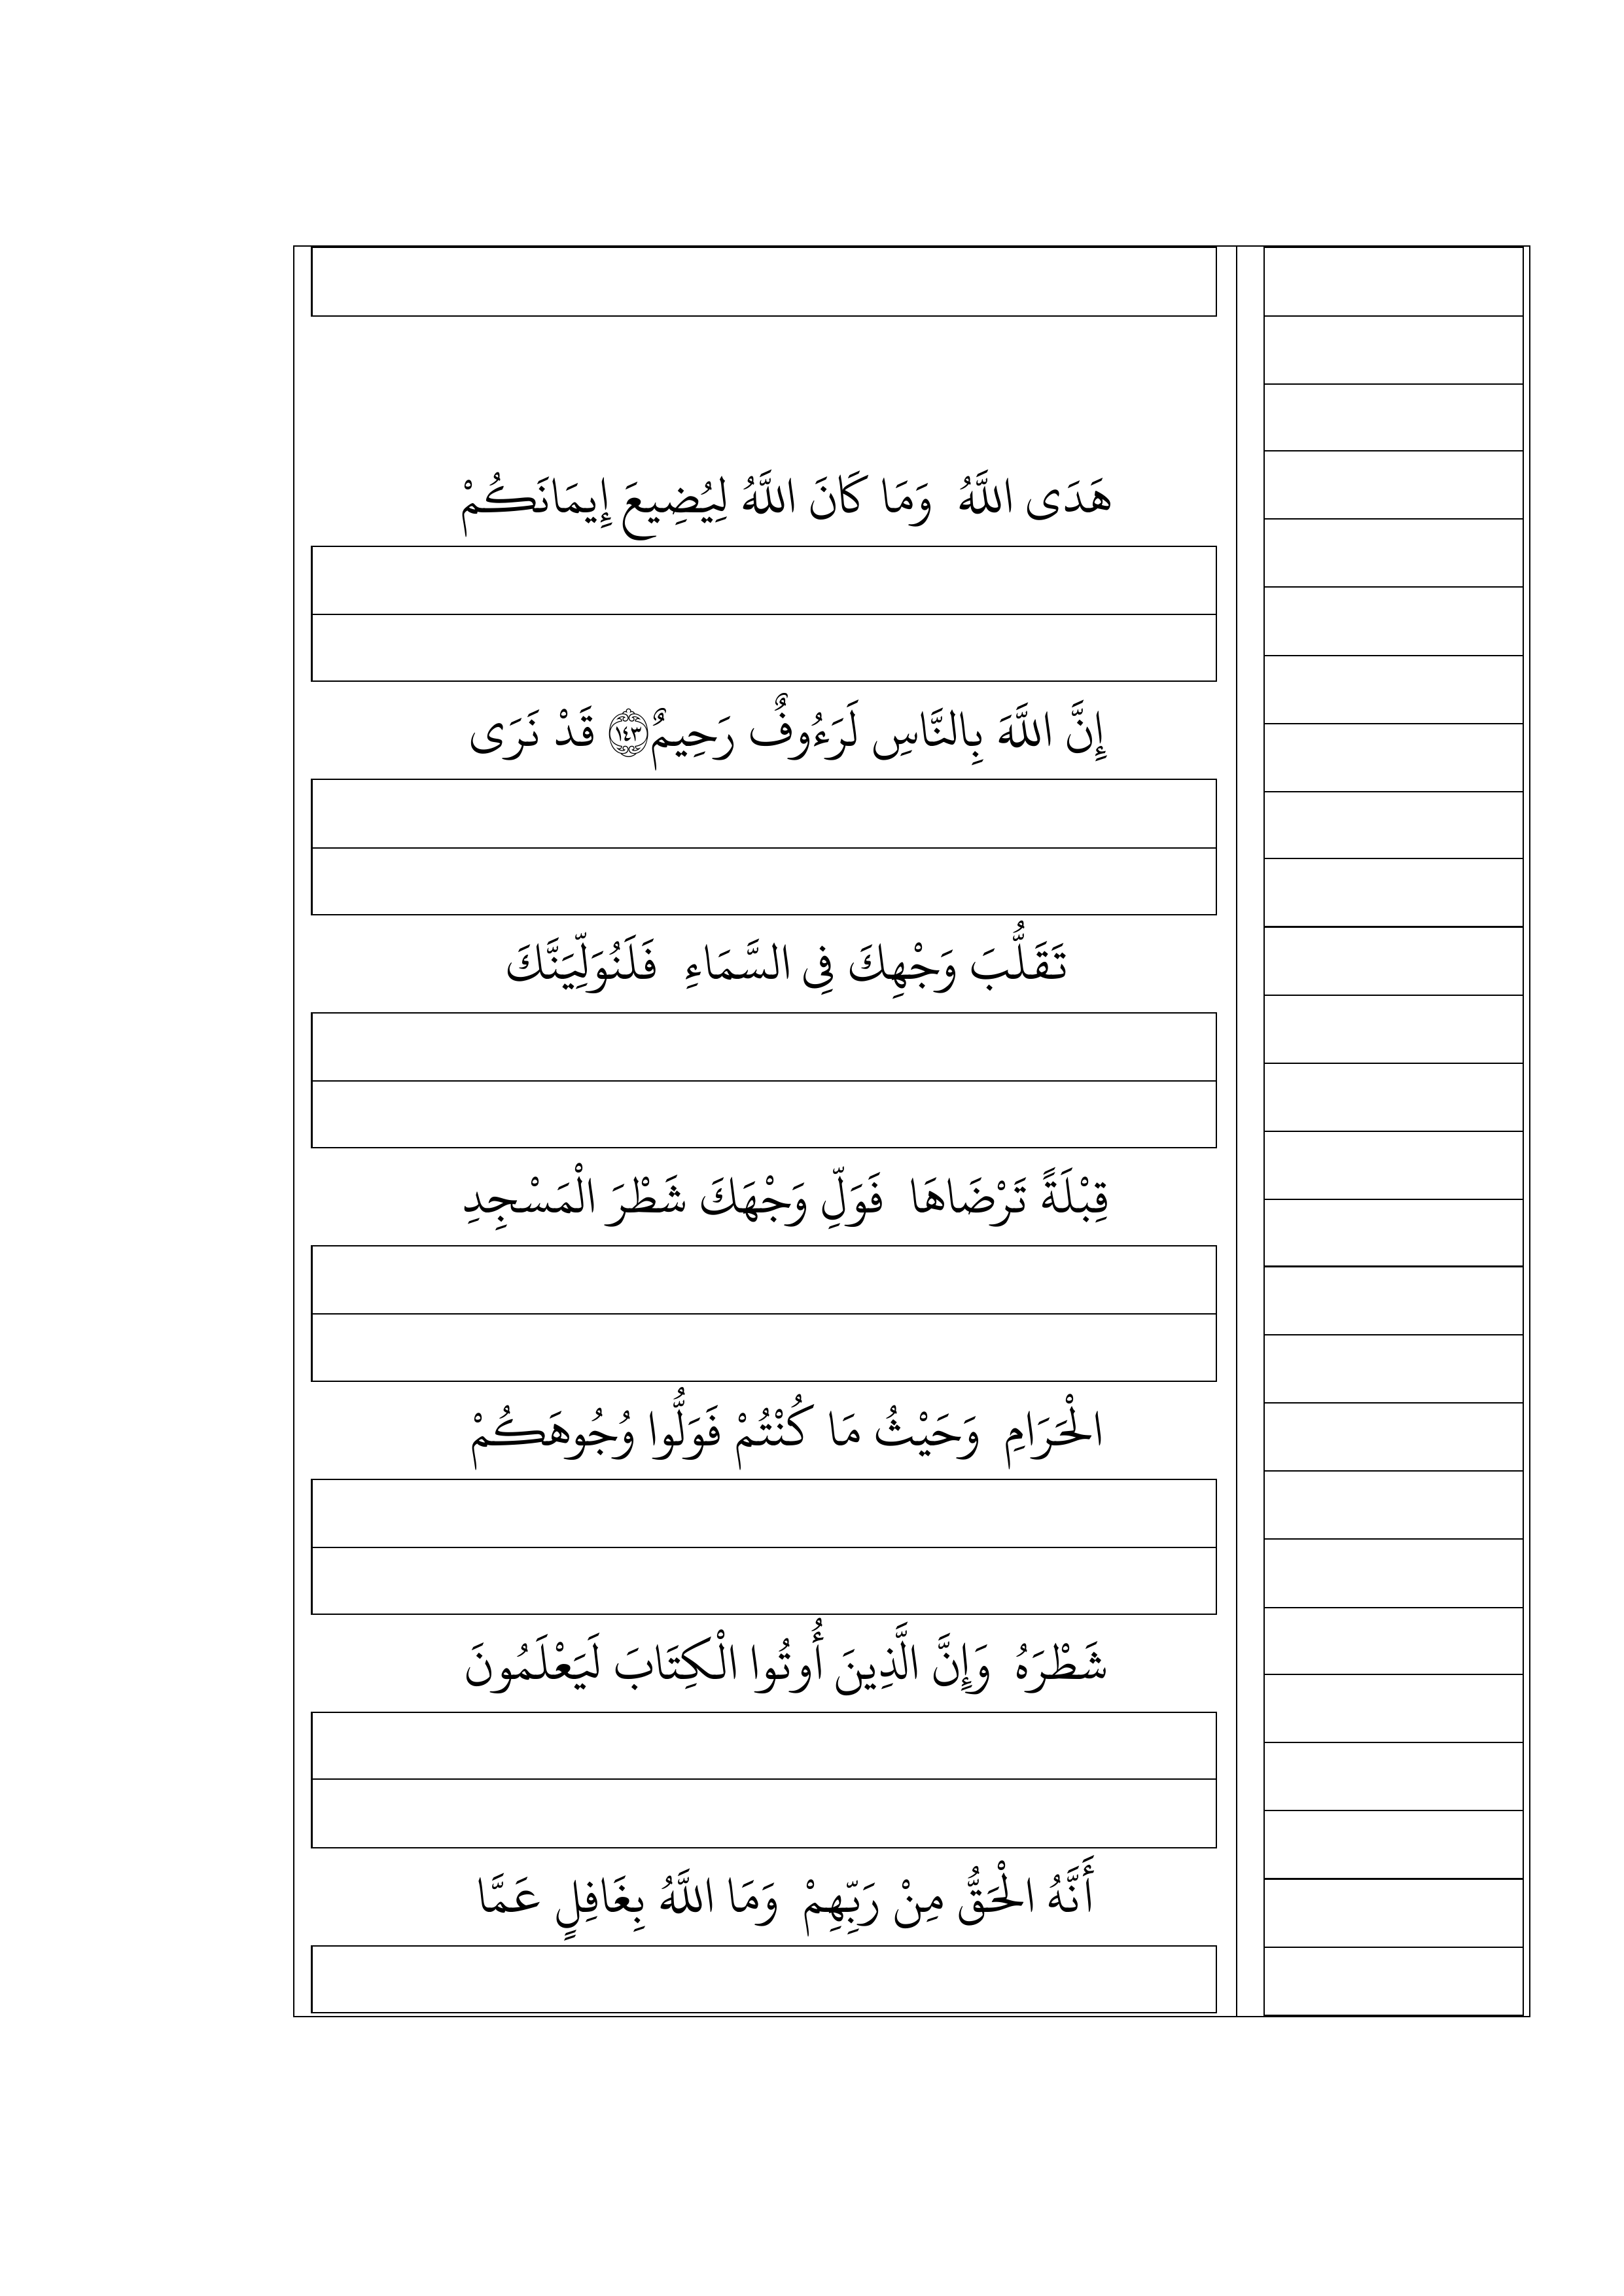 هَدَى اللَّهُ وَمَا كَانَ اللَّهُ لِيُضِيعَ إِيمَانَكُمْ
إِنَّ اللَّهَ بِالنَّاسِ لَرَءُوفٌ رَحِيمٌ ١٤٣ قَدْ نَرَى
تَقَلُّبَ وَجْهِكَ فِى السَّمَاءِ فَلَنُوَلِّيَنَّكَ
قِبْلَةً تَرْضَاهَا فَوَلِّ وَجْهَكَ شَطْرَ الْمَسْجِدِ
الْحَرَامِ وَحَيْثُ مَا كُنْتُمْ فَوَلُّوا وُجُوهَكُمْ
شَطْرَهُ وَإِنَّ الَّذِينَ أُوتُوا الْكِتَابَ لَيَعْلَمُونَ
أَنَّهُ الْحَقُّ مِنْ رَبِّهِمْ وَمَا اللَّهُ بِغَافِلٍ عَمَّا